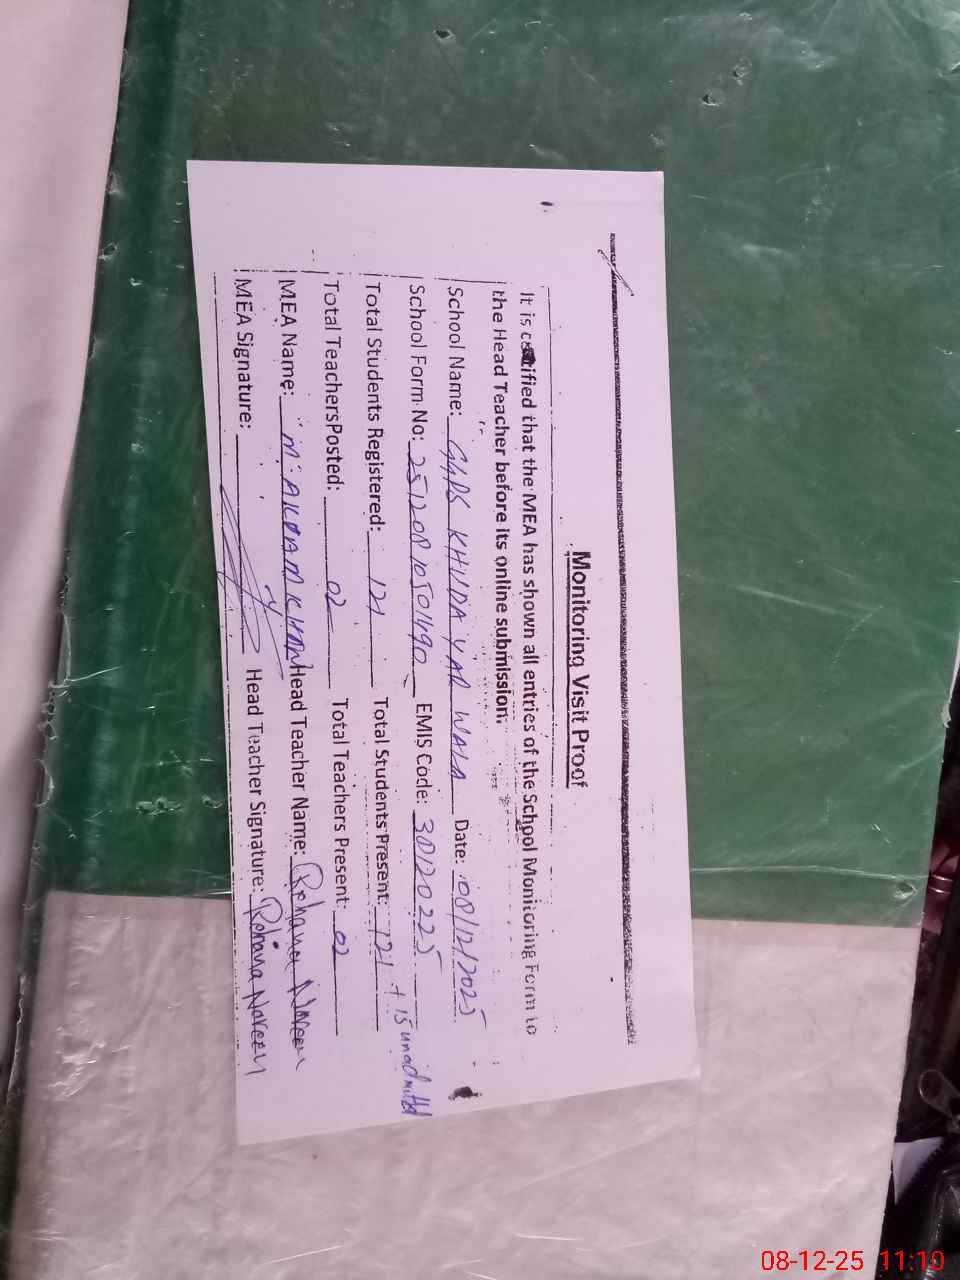 Monitoring Visit Proof
It is certified that the MEA has shown all entries of the School Monitoring Form to
the Head Teacher before its online submission.
School Name: GGPS KHUDA YAR WALA Date: 08/12/2025
School Form No: 25120810501490 EMIS Code: 30120225
Total Students Registered: 121 Total Students Present: 121 + 15 unadmitted
Total TeachersPosted: 02 Total Teachers Present: 02
MEA Name: M. AKRAM KHAN Head Teacher Name: Rehana Noreen
MEA Signature: Head Teacher Signature: Rehana Noreen
08-12-25 11:10